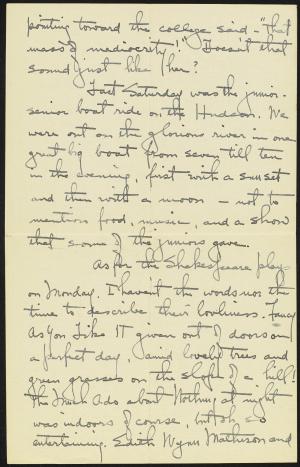 pointing toward the college said - "That
mass of mediocrity!" Doesn't that
sound just like her?
Last Saturday was the junior-
senior boat ride on the Hudson. We
were out on the glorious river in one
great big boat from seven till ten
in the evening, first with a sunset
and then with a moon - not to
mention food, music, and a show
that some of the juniors gave.
As for the Shakespeare plays
on Monday, I haven't the words nor the
time to describe their loveliness. Fancy
As You Like IT given out of doors on
a perfect day, amid lovely trees and
green grasses on the slope of a hill!
The Much Ado about Nothing at night
was indoors of course, but oh, so
entertaining. Edith Wynn Mathison and